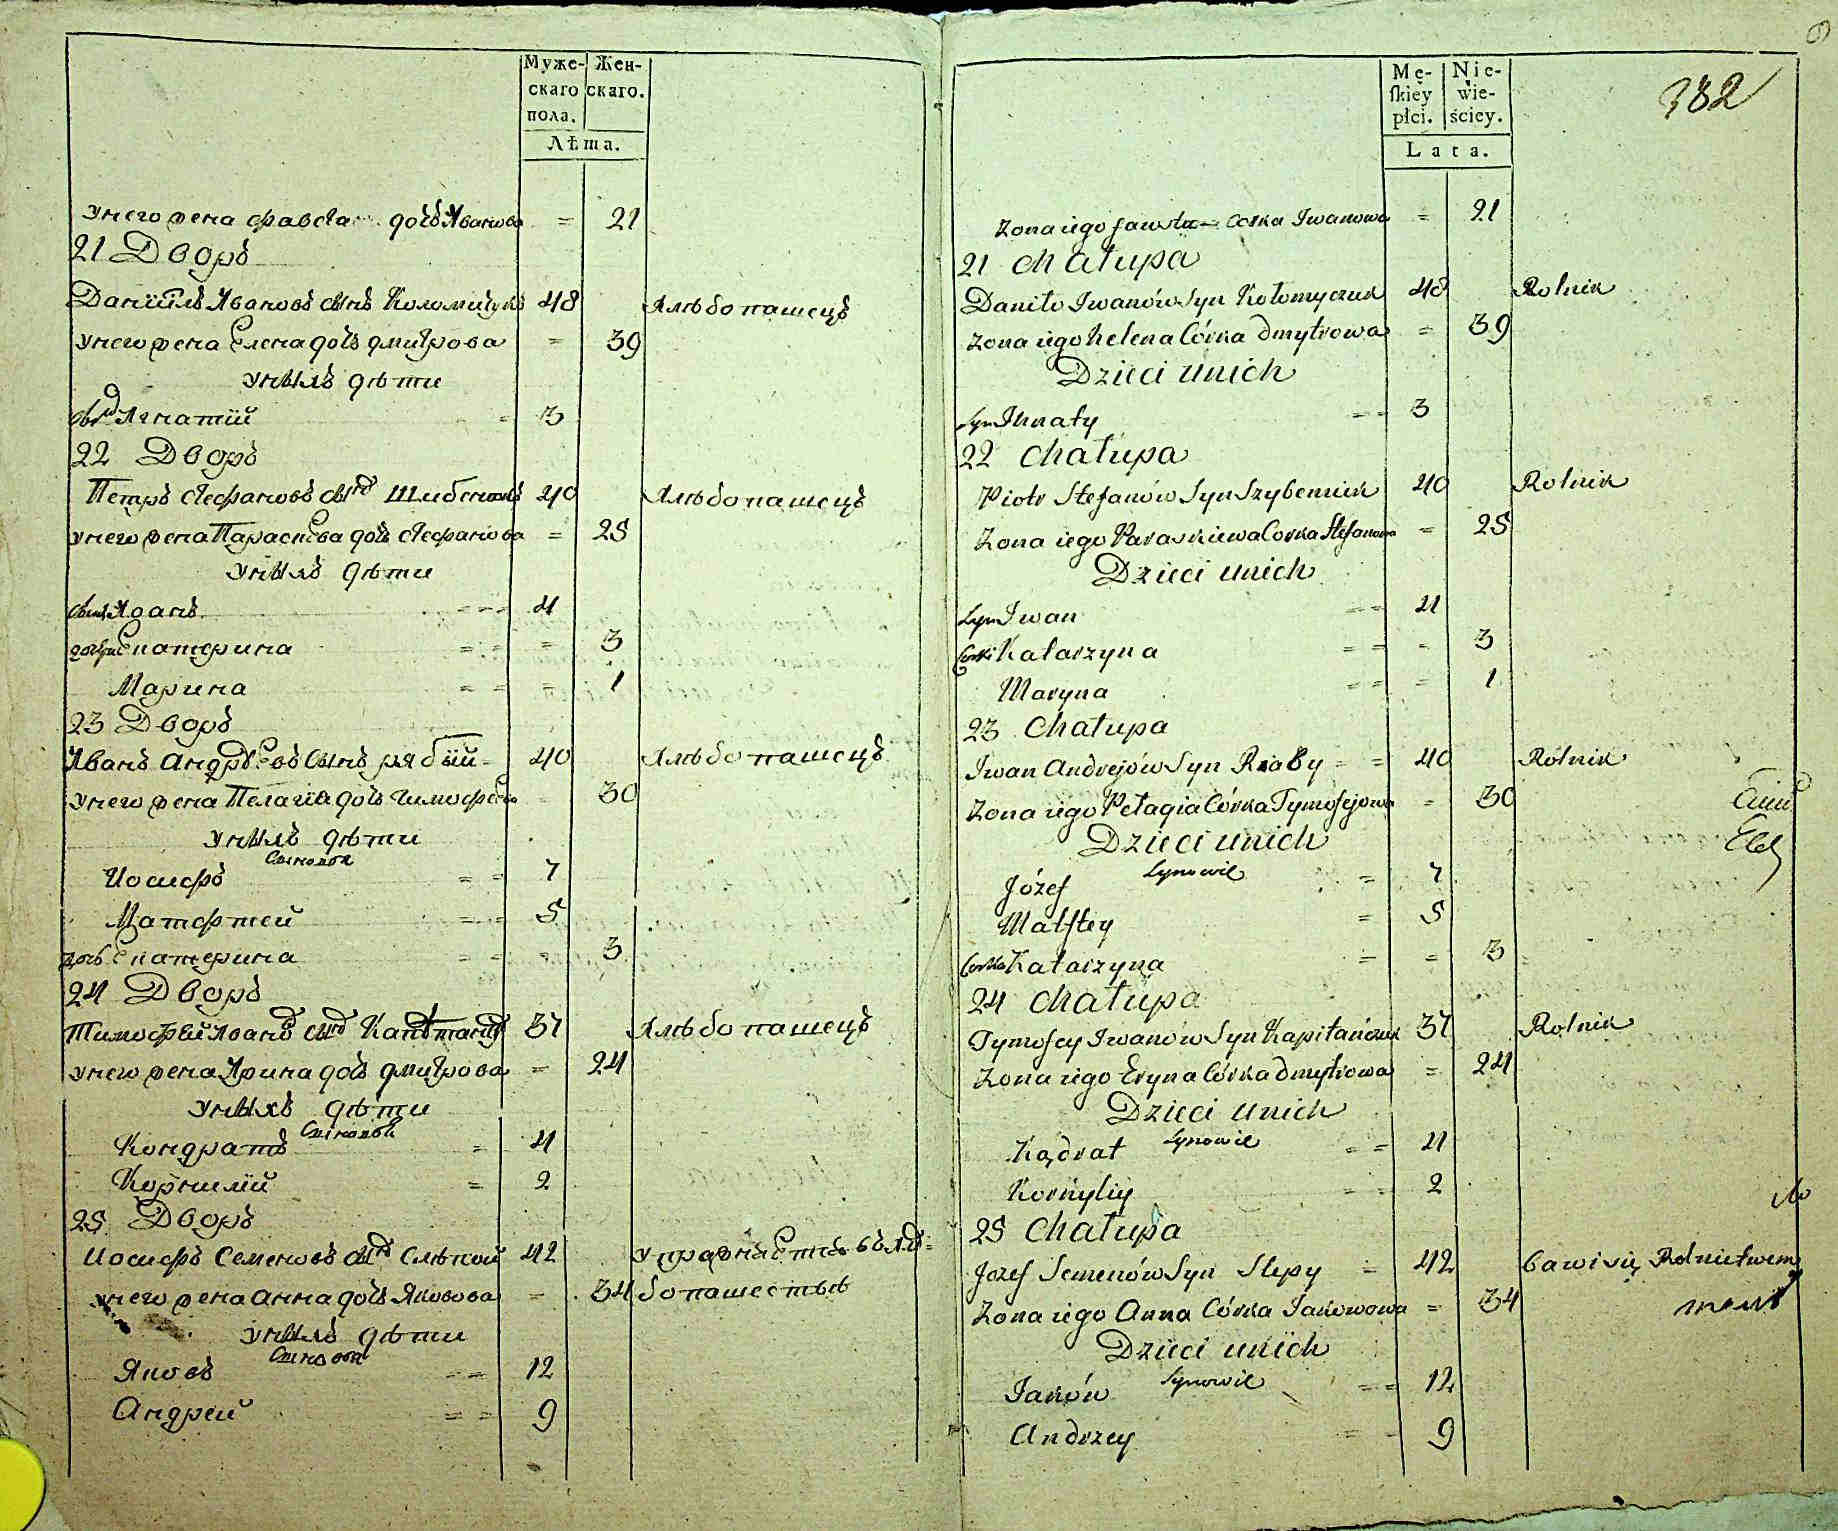 Муже-
скаго
пола.
Жен-
скаго.
Лѣта.
У него жена Фавста дочь Иванова = 21
21 Дворъ
Даніилъ Ивановъ сынъ Коломийчукъ 48 Хлѣбопашецъ
У него жена Елена дочь Дмитрова = 39
У нихъ дѣти
сынъ Игнатій = 3
22 Дворъ
Петръ Стефановъ сынъ Шибенникъ 40 Хлѣбопашецъ
У него жена Параскева дочь Стефанова = 25
У нихъ дѣти
сынъ Иванъ = = = 4
дочери Екатерина = = = 3
Марина = = = 1
23 Дворъ
Иванъ Андреевъ сынъ Рябый = 40 Хлѣбопашецъ
У него жена Пелагія дочь Тимофеева = 30
У нихъ дѣти
Сыновья
Иосифъ = = 7
Матфтей = = 5
дочь Екатерина = = = 3
24 Дворъ
Тимофей Ивановъ сынъ 37 Хлѣбопашецъ
У него жена Ирина дочь Дмитрова = 24
У нихъ дѣти
Сыновья
Кондратъ = 4
Корнилій = 2
25 Дворъ
Иосифъ Семеновъ сынъ Слѣпой 42 упражняется въ хлѣ=
У него жена Анна дочь Яковова = 34 бопашествѣ
У нихъ дѣти
Сыновья
Яковъ = = 12
Андрей = = 9
382
Mę-
ſkiey
płci.
Nie-
wie-
ściey.
Lata.
Zona iego Fawsta = Corka Iwanowa = 21
21 Chałupa
Daniło Iwanów Syn Kołomyczuk 48 Rolnik
Zona iego Helena Córka Dmytrowa = 39
Dzieci u nich
Syn Ihnaty = = 3
22 Chałupa
Piotr Stefanów Syn Szybennik 40 Rolnik
Zona iego Paraskiewa Corka Stefanowa = 25
Dzieci u nich
Syn Iwan = = 4
Corki Katarzyna = = = 3
Maryna = = = 1
23 Chałupa
Iwan Andrejów Syn Riaby = = 40 Rólnik
Zona iego Pełagia Córka Tymofejowa = 30
Dzieci u nich
Synowie
Józef = 7
Matftey = 5
Corka Katarzyna = = 3
24 Chałupa
Tymofey Iwanów Syn Kapitańczuk 37 Rolnik
Zona iego Eryna Córka Dmytrowa = 24
Dzieci u nich
Synowie
Kądrat = = 4
Kornyliy = = 2
25 Chałupa
Jozef Semenów Syn Slepy = 42 bawi się Rolnictwem
Zona iego Anna Córka Jakowowa = 34
Dzieci u nich
Synowie
Jaków = = 12
Andrzey = = 9